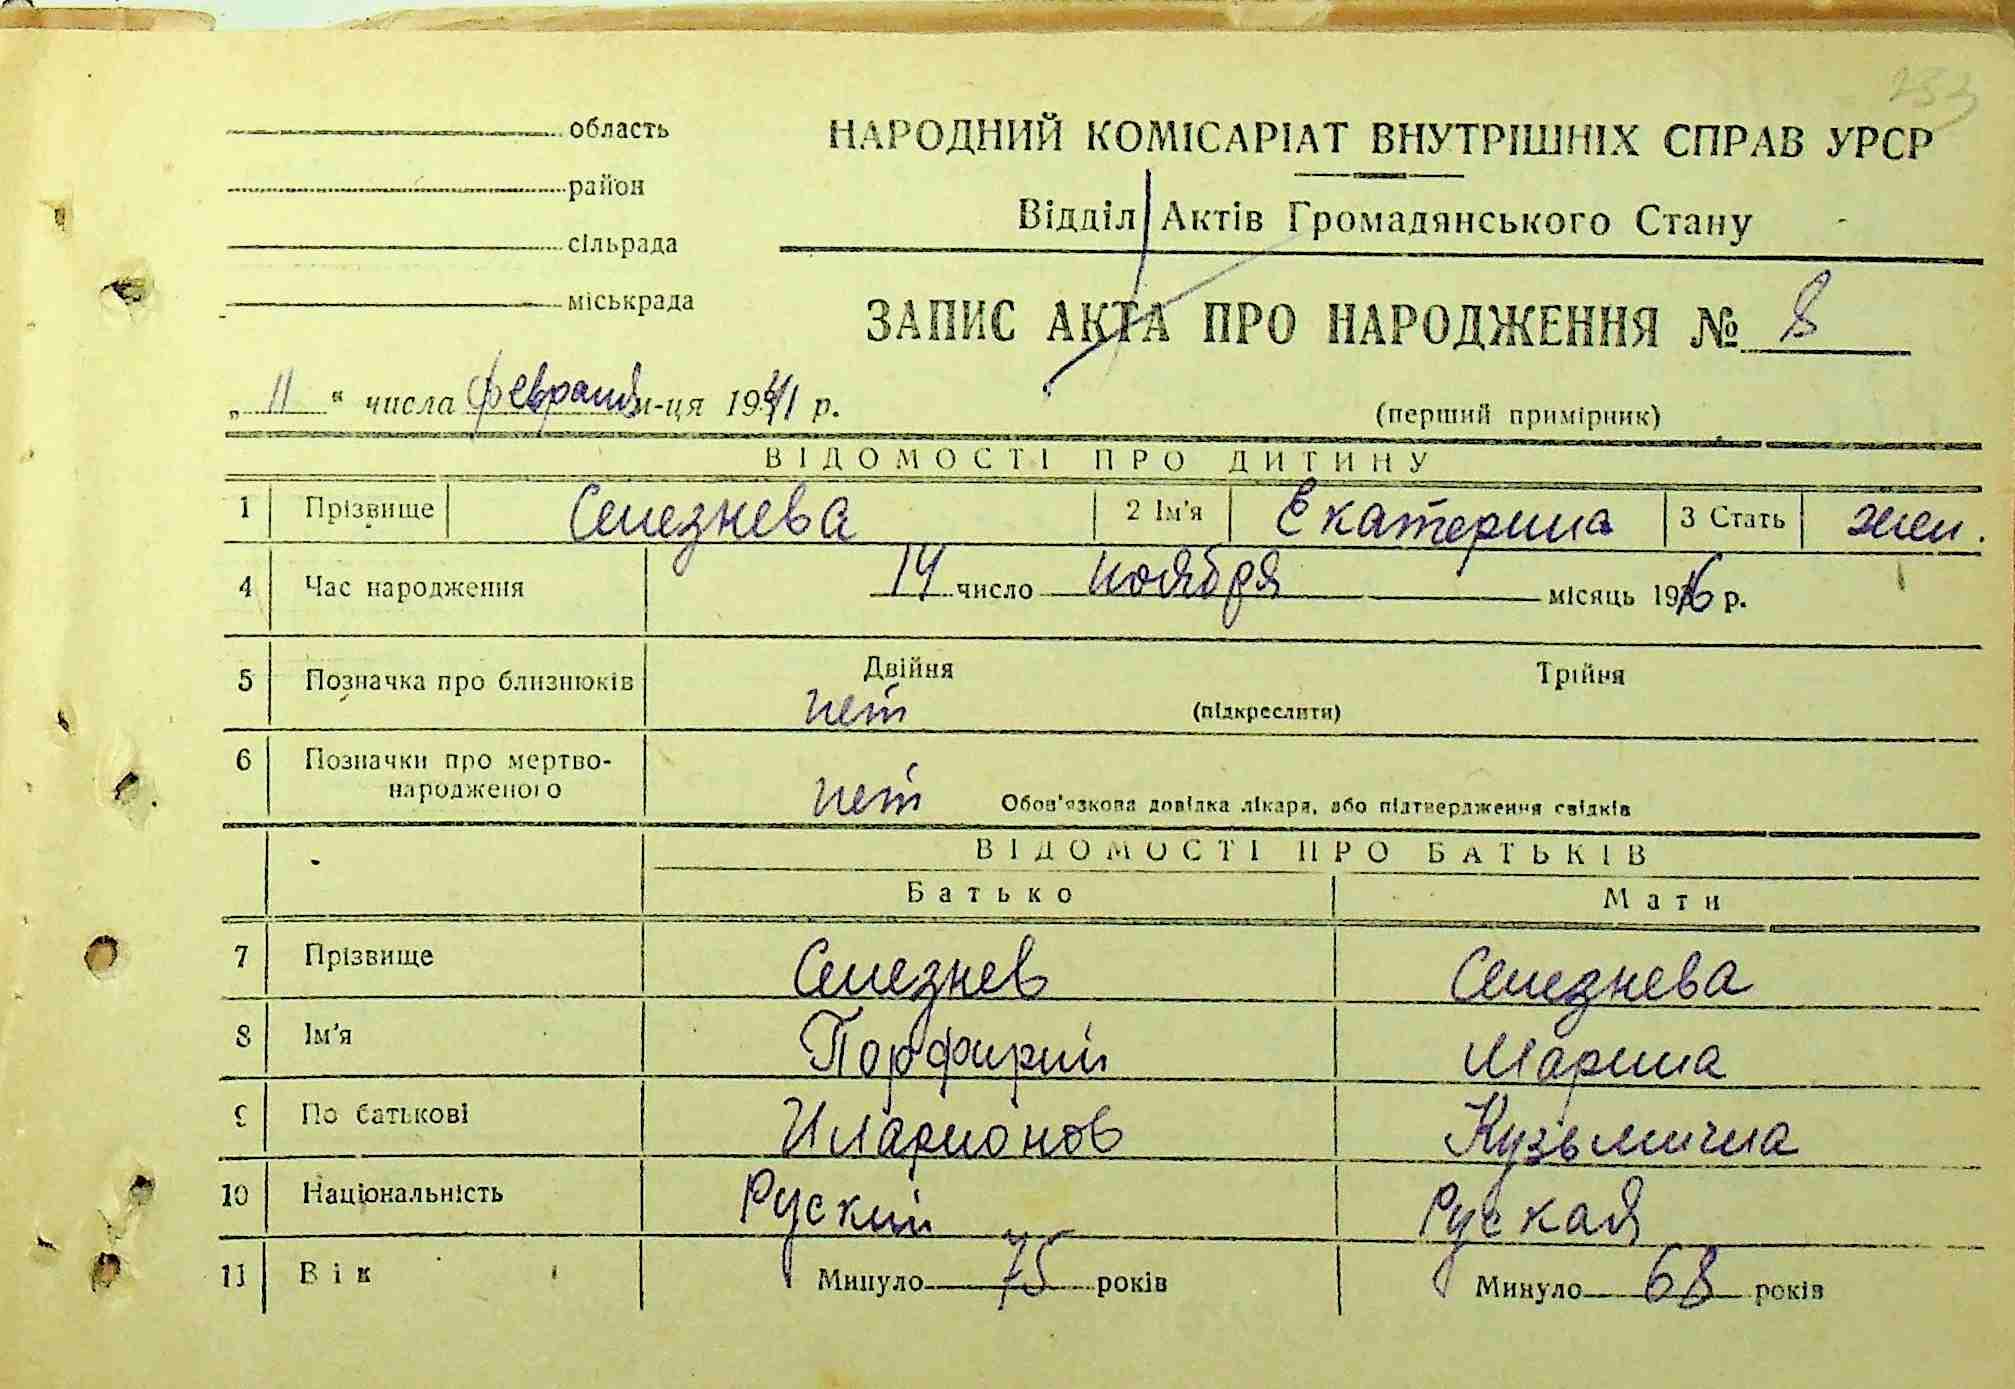 233
область
район
сільрада
міськрада
НАРОДНИЙ КОМІСАРІАТ ВНУТРІШНІХ СПРАВ УРСР
Відділ Актів Громадянського Стану
ЗАПИС АКТА ПРО НАРОДЖЕННЯ № 8
„ 11 “ числа февраля м-ця 1941 р.
(перший примірник)
ВІДОМОСТІ ПРО ДИТИНУ
1 Прізвище Селезнева 2 Ім'я Екатерина 3 Стать жен.
4 Час народження 14 число ноября місяць 1916 р.
5 Позначка про близнюків Двійня Трійня
нет (підкреслити)
6 Позначки про мертво-
народженого нет Обов'язкова довідка лікаря, або підтвердження свідків
ВІДОМОСТІ ПРО БАТЬКІВ
Батько Мати
7 Прізвище Селезнев Селезнева
8 Ім'я Порфирий Марина
9 По батькові Иларионов Кузьмична
10 Національність Руский Руская
11 Вік Минуло 75 років Минуло 68 років